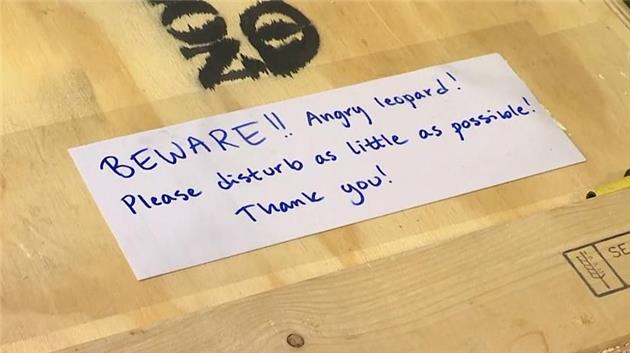 NO
BEWARE!! Angry leopard!
Please disturb as little as possible!
Thank you!
SE